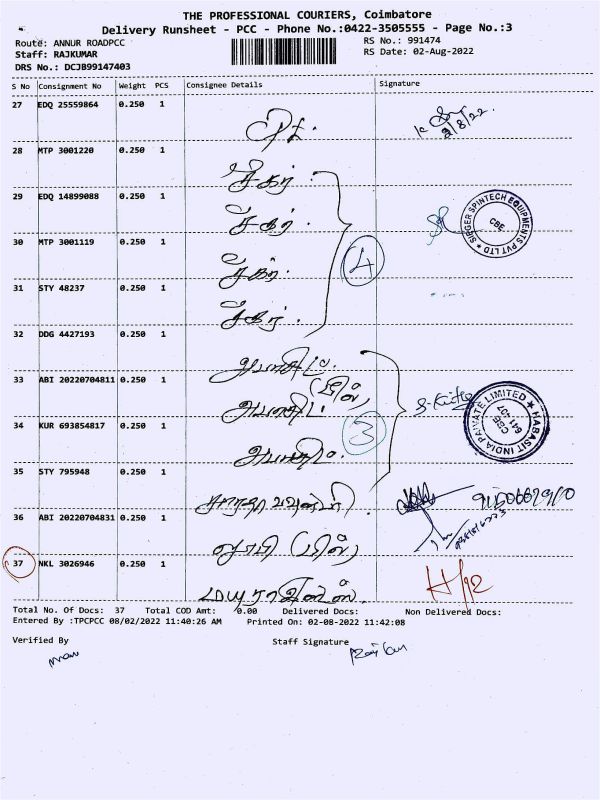 THE PROFESSIONAL COURIERS, Coimbatore
Delivery Runsheet - PCC - Phone No.:0422-3505555 - Page No.:3
Route: ANNUR ROADPCC
RS No.: 991474
Staff: RAJKUMAR
RS Date: 02-Aug-2022
DRS No.: DCJB99147403
S No Consignment No Weight PCS Consignee Details Signature
27 EDQ 25559864 0.250 1
2/8/22
28 MTP 3001220 0.250 1
சீகர்
29 EDQ 14899088 0.250 1
சீகர்
SIEGER SPINTECH EQUIPMENTS PVT LTD
CBE
30 MTP 3001119 0.250 1
சீகர்
4
31 STY 48237 0.250 1
சீகர்
32 DDG 4427193 0.250 1
33 ABI 20220704811 0.250 1
HABASIT INDIA PRIVATE LIMITED
CBE
641 407
34 KUR 693854817 0.250 1
3
35 STY 795948 0.250 1
36 ABI 20220704831 0.250 1
37 NKL 3026946 0.250 1
Total No. Of Docs: 37 Total COD Amt: 0.00 Delivered Docs: Non Delivered Docs:
Entered By :TPCPCC 08/02/2022 11:40:26 AM Printed On: 02-08-2022 11:42:08
Verified By Staff Signature